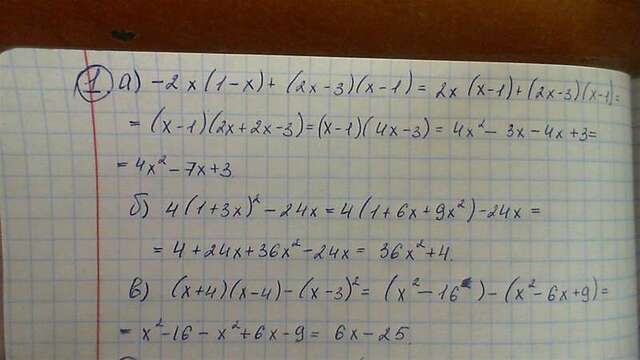 1. а) -2x(1-x)+(2x-3)(x-1)=2x(x-1)+(2x-3)(x-1)=
=(x-1)(2x+2x-3)=(x-1)(4x-3)=4x²-3x-4x+3=
=4x²-7x+3
б) 4(1+3x)²-24x=4(1+6x+9x²)-24x=
=4+24x+36x²-24x=36x²+4.
в) (x+4)(x-4)-(x-3)²=(x²-16)-(x²-6x+9)=
=x²-16-x²+6x-9=6x-25.